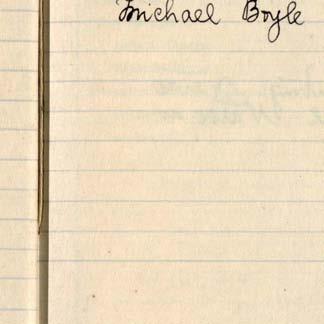 Michael Boyle